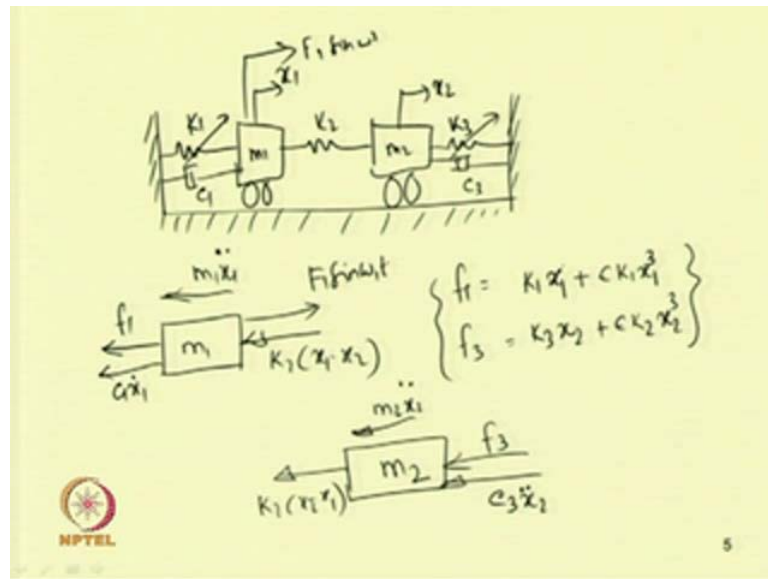 F₁ sin ωt
x₁
x₂
K₁
K₂
K₃
m₁
m₂
C₁
C₃
m₁ẍ₁
F₁ sin ω₁t
f₁
m₁
K₂(x₁-x₂)
C₁ẋ₁
f₁ = K₁x₁ + ϵK₁x₁³
f₃ = K₃x₂ + ϵK₂x₂³
m₂ẍ₂
f₃
m₂
K₂(x₂-x₁)
C₃ẍ₂
NPTEL
5